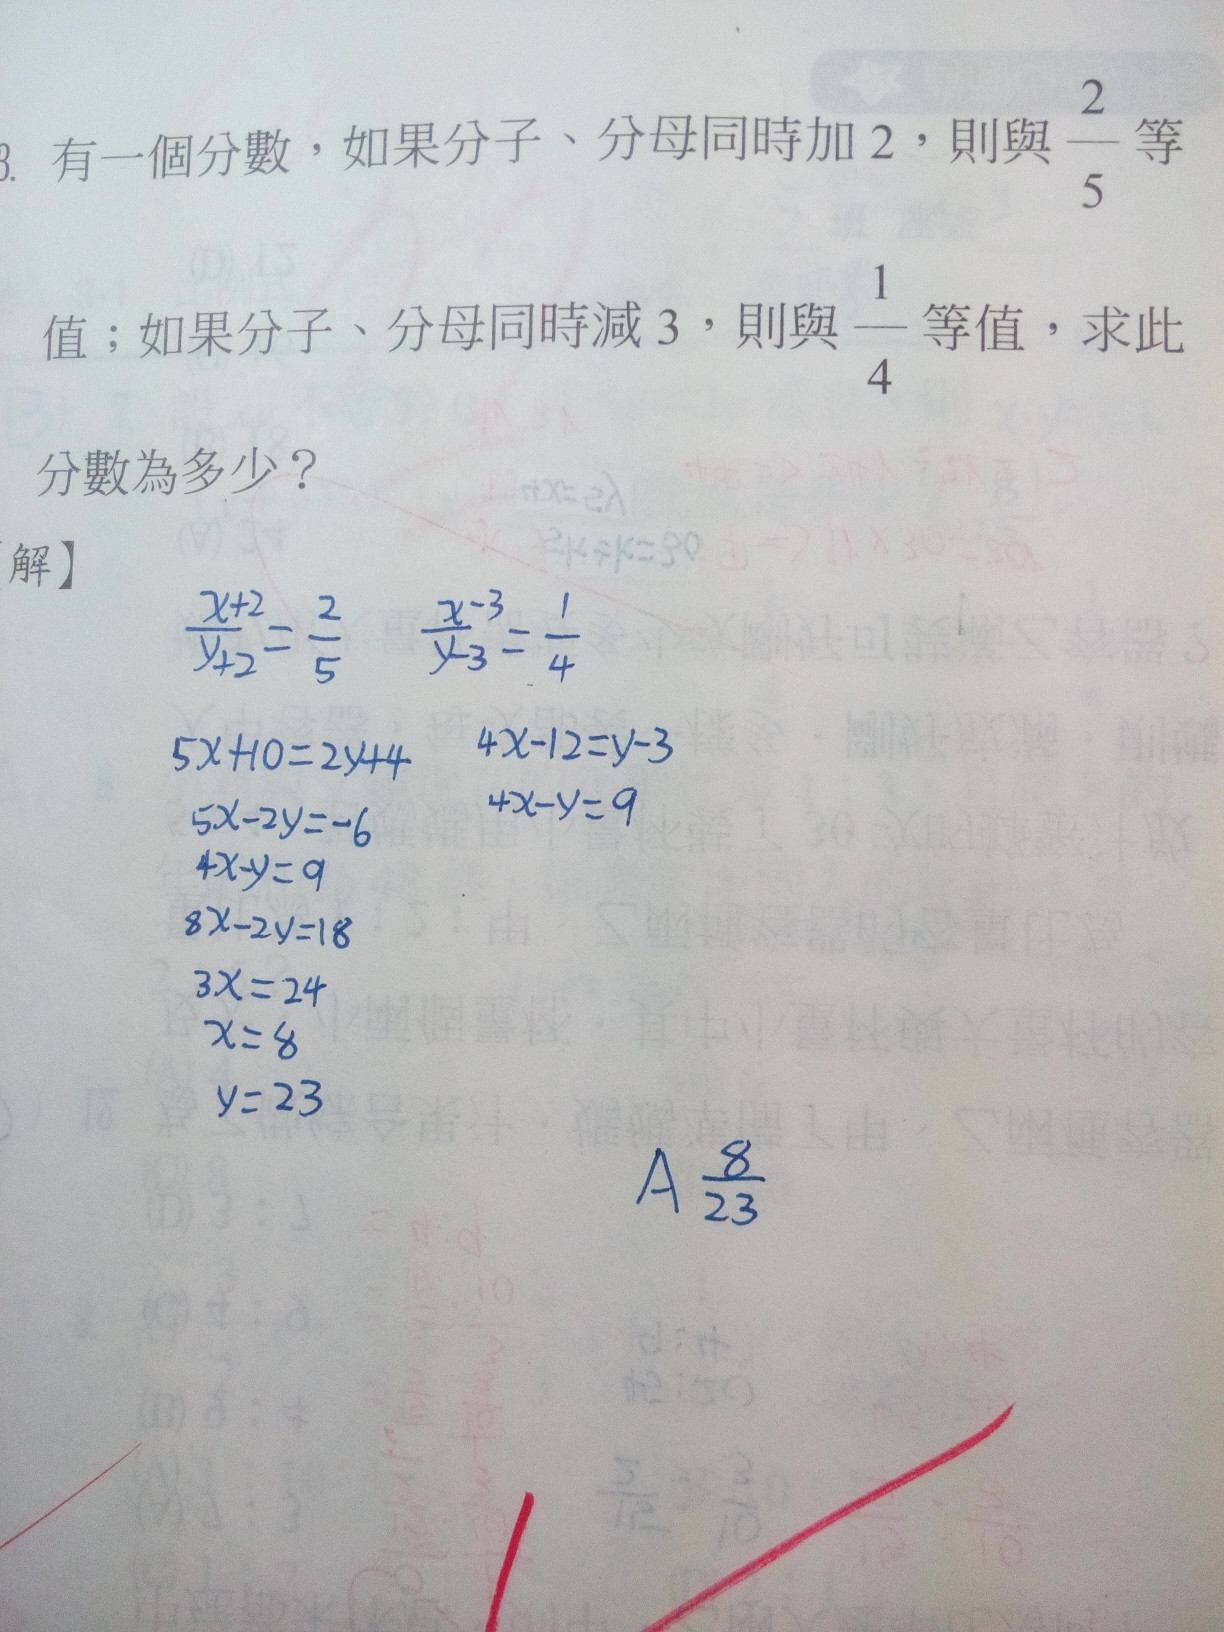 3. 有一個分數，如果分子、分母同時加 2，則與 2/5 等
值；如果分子、分母同時減 3，則與 1/4 等值，求此
分數為多少？
解】
x+2/y+2 = 2/5   x-3/y-3 = 1/4
5x+10=2y+4   4x-12=y-3
5x-2y=-6   4x-y=9
4x-y=9
8x-2y=18
3x=24
x=8
y=23
A 8/23